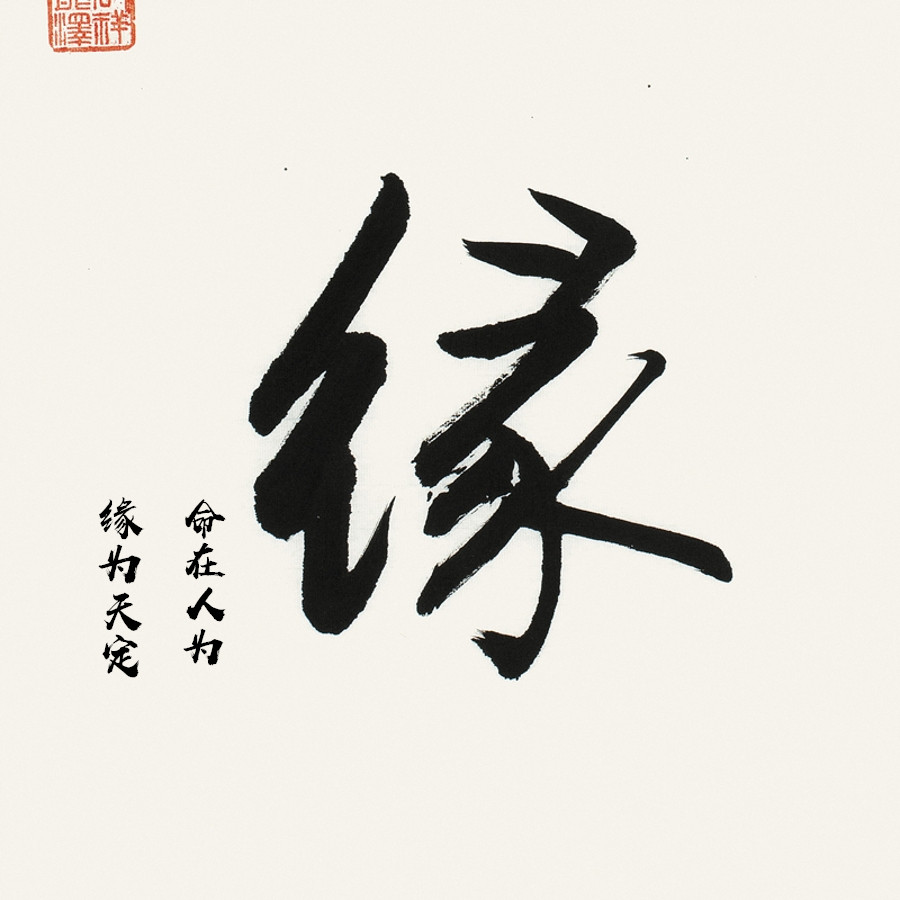 缘
命在人为
缘为天定